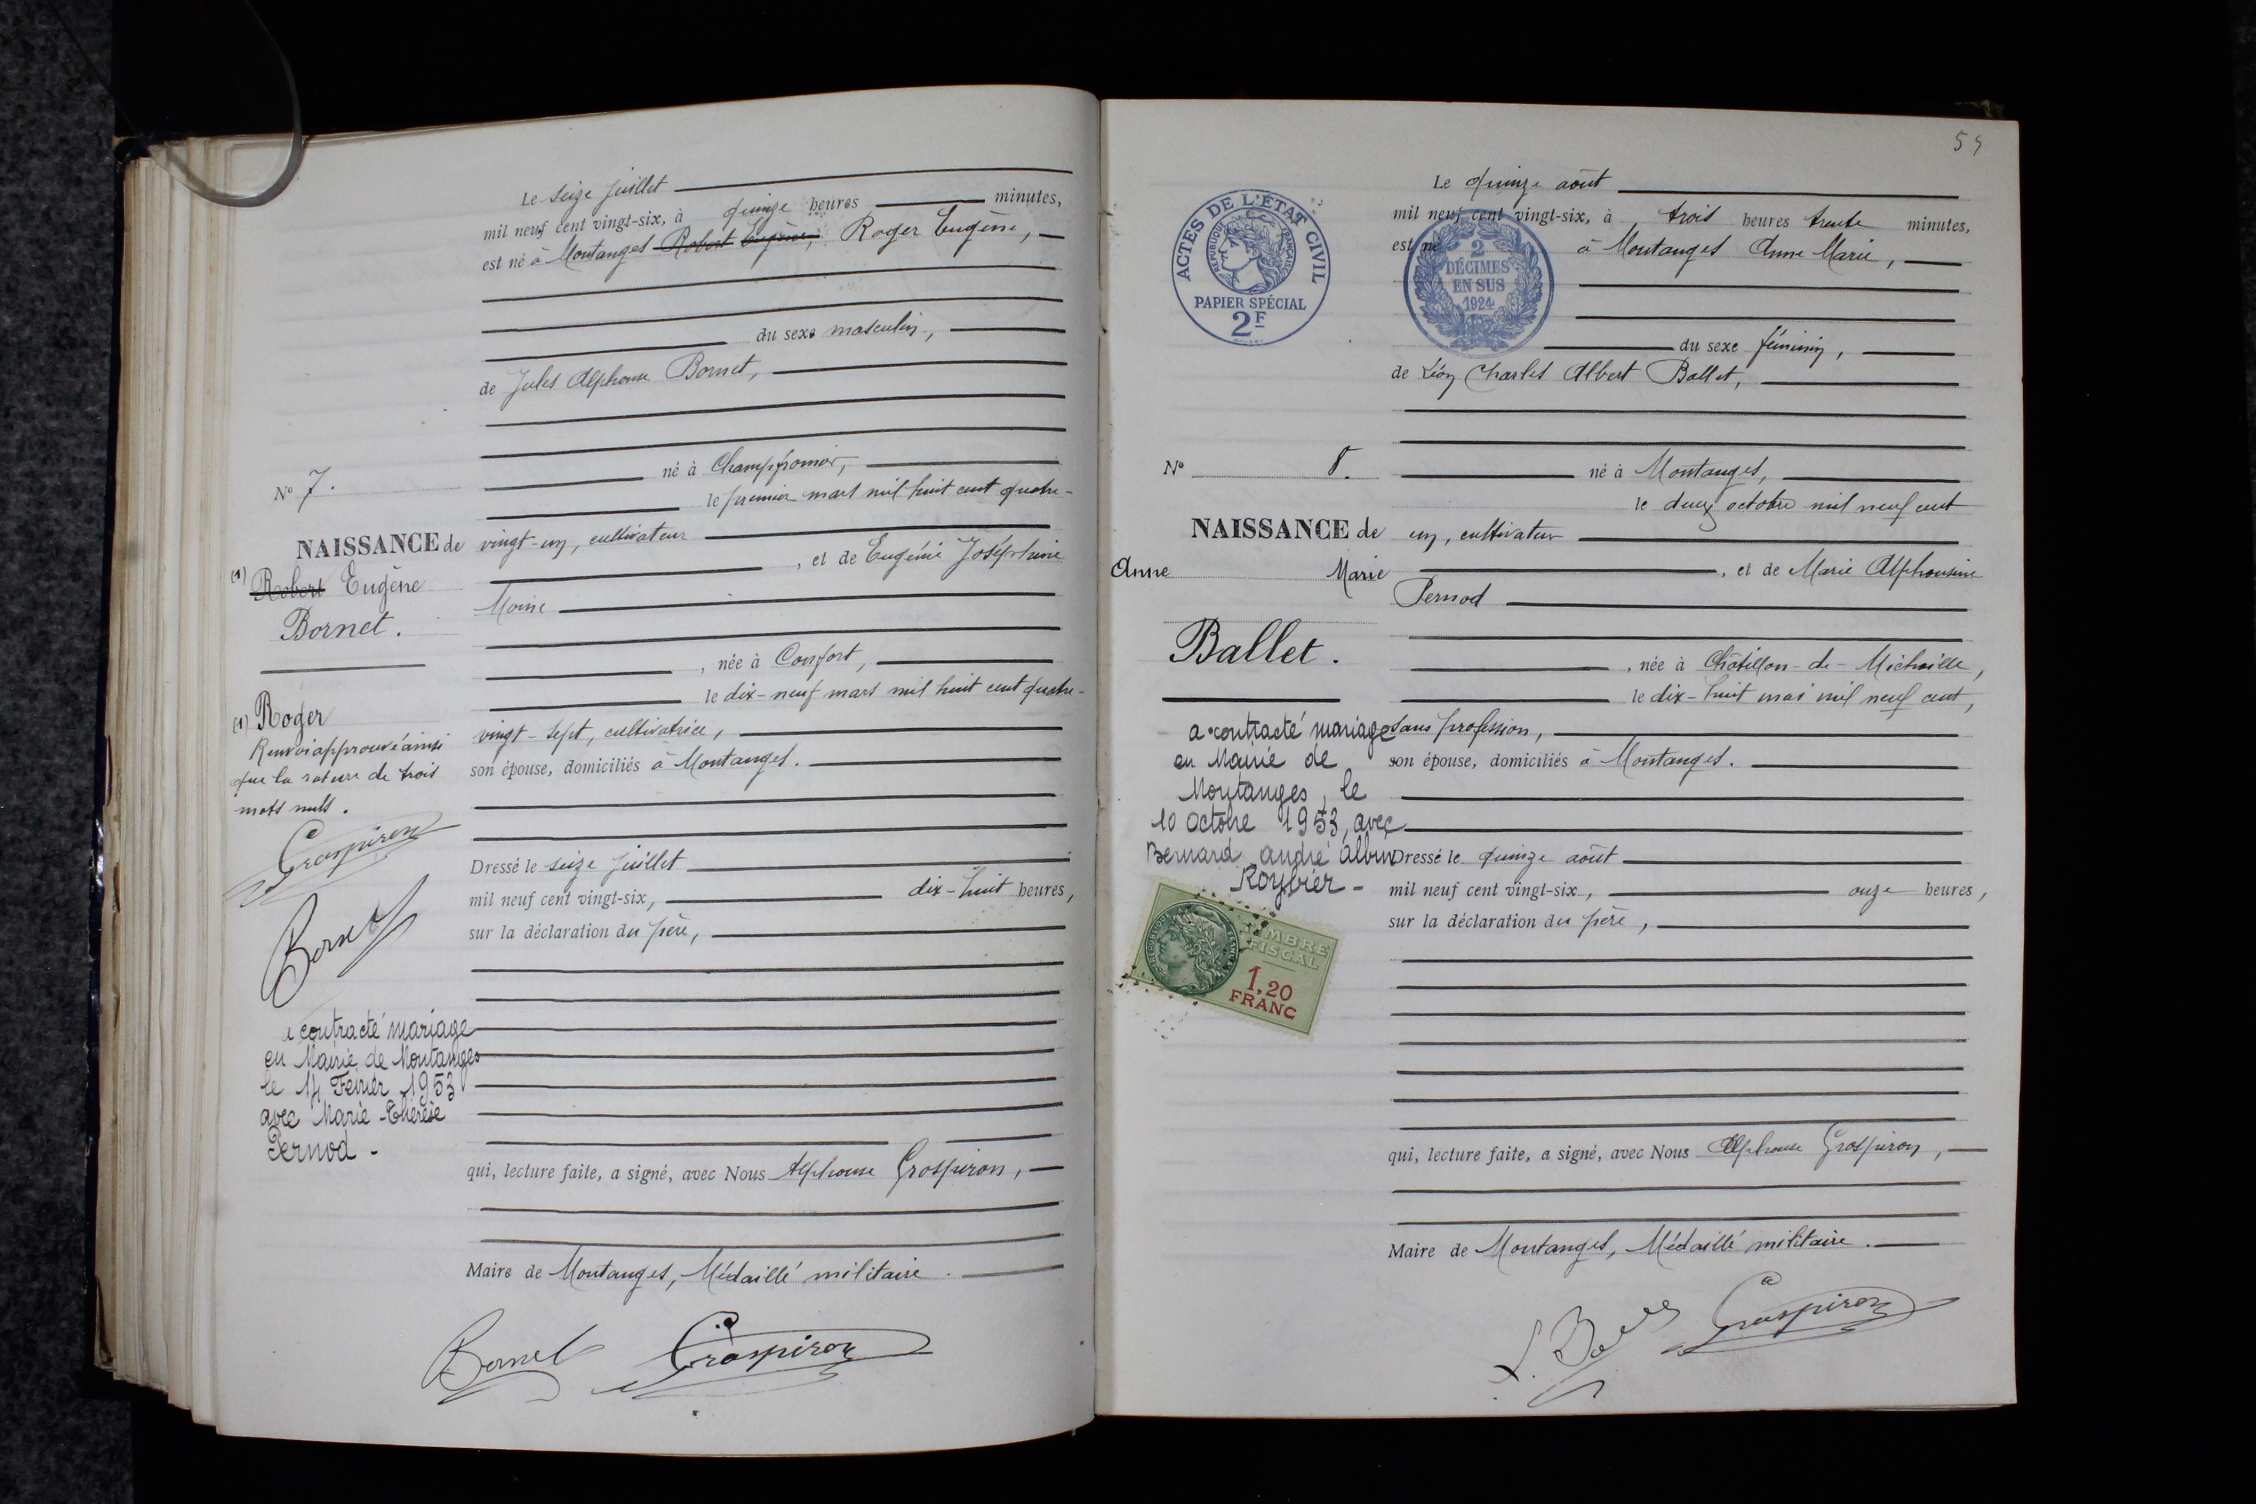 Le seize juillet
mil neuf cent vingt-six, à quinze heures minutes,
est né à Montanges Robert Eugène, Roger Eugène,
du sexe masculin,
de Jules Alphonse Bornet,
né à Champfromier,
le premier mars mil huit cent quatre-
vingt-un, cultivateur
, et de Eugénie Joséphine
Moine
, née à Confort,
le dix-neuf mars mil huit cent quatre-
vingt-sept, cultivatrice,
son épouse, domiciliés à Montanges.
Dressé le seize juillet
mil neuf cent vingt-six, dix-huit heures,
sur la déclaration du père,
qui, lecture faite, a signé, avec Nous Alphonse Grospiron,
Maire de Montanges, Médaillé militaire.
Bornet Grospiron
No 7.
NAISSANCE de
(1) Robert Eugène
Bornet.
(1) Roger
Renvoi approuvé ainsi
que la rature de trois
mots nuls.
Grospiron
Bornet
a contracté mariage
en Mairie de Montanges
le 14 Février 1953
avec Marie-Thérèse
Pernod -
54
ACTES DE L'ÉTAT CIVIL
RÉPUBLIQUE FRANÇAISE
PAPIER SPÉCIAL
2F
2
DÉCIMES
EN SUS
1924
Le quinze août
mil neuf cent vingt-six, à trois heures trente minutes,
est né à Montanges Anne Marie,
du sexe féminin,
de Léon Charles Albert Ballet,
né à Montanges,
le deux octobre mil neuf cent
un, cultivateur
, et de Marie Alphonsine
Pernod
, née à Châtillon-de-Michaille,
le dix-huit mai mil neuf cent,
sans profession,
son épouse, domiciliés à Montanges.
Dressé le quinze août
mil neuf cent vingt-six, onze heures,
sur la déclaration du père,
qui, lecture faite, a signé, avec Nous Alphonse Grospiron,
Maire de Montanges, Médaillé militaire.
Grospiron
No 8.
NAISSANCE de
Anne Marie
Ballet.
a contracté mariage
en Mairie de
Montanges, le
10 Octobre 1953, avec
Bernard André Albin
Roybier -
TIMBRE
FISCAL
1,20
FRANC